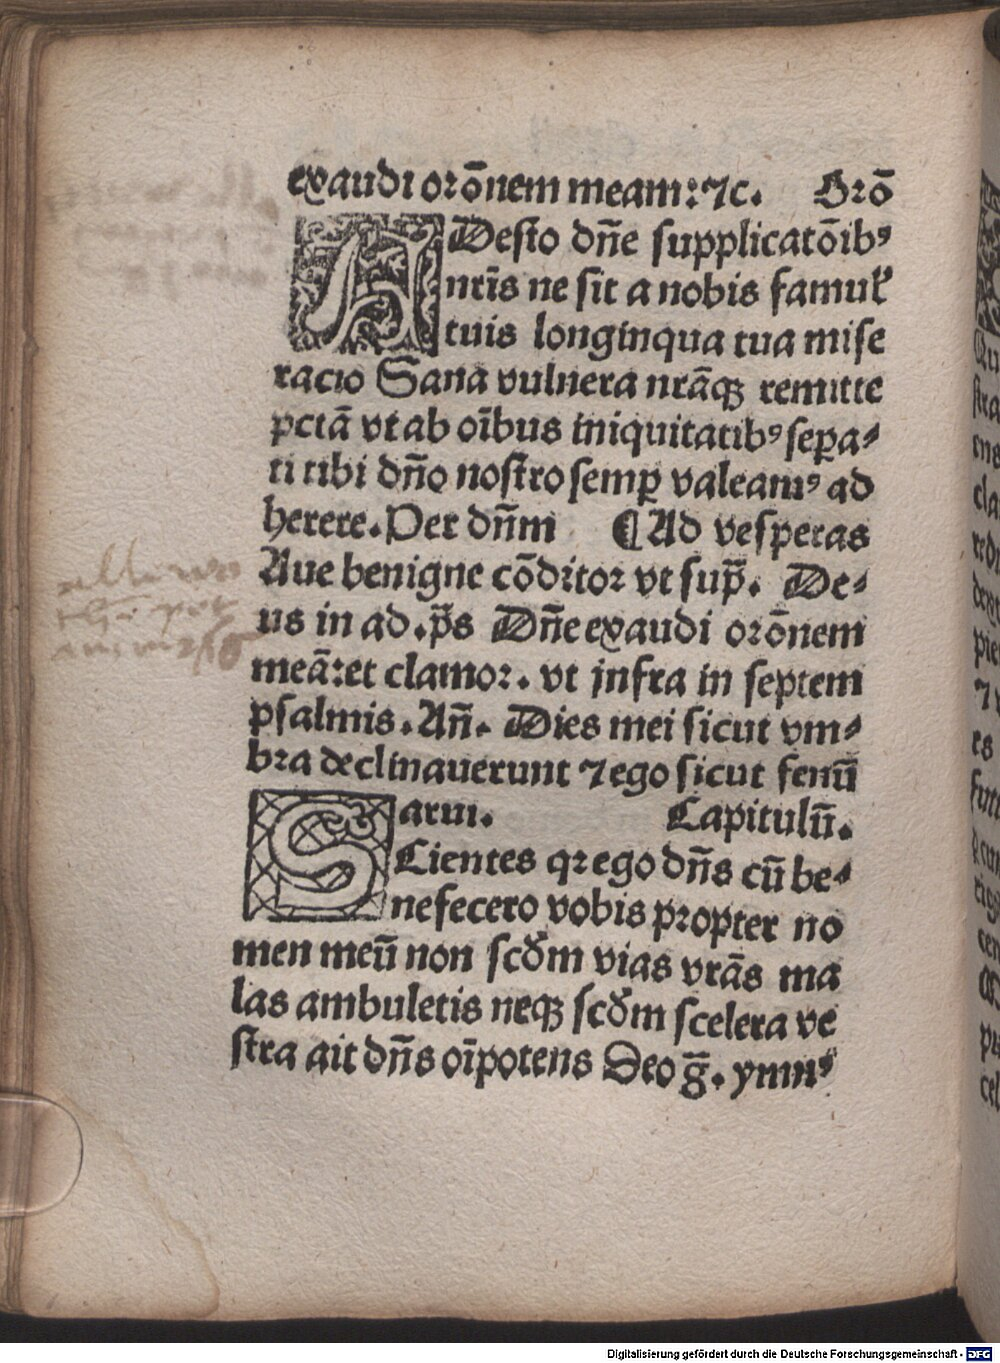 exaudi orōnem meam: ⁊c. Orō
ADesto dn̄e supplicatōibꝰ
nrīs ne sit a nobis famul̓
tuis longinqua tua mise
racio Sana vulnera nrāqꝫ remitte
pctā vt ab oībus iniquitatibꝰ sepa⸗
ti tibi dn̄o nostro semꝑ valeamꝰ ad
herere. Per dn̄m ¶ Ad vesperas
Aue benigne cōditor vt sup̄. De⸗
us in ad. p̄s Dn̄e exaudi orōnem
meā: et clamor. vt jnfra in septem
psalmis. An̄. Dies mei sicut vm⸗
bra declinauerunt ⁊ ego sicut fenū
arui. Capitulū.
SCientes qꝛ ego dn̄s cū be⸗
nefecero vobis propter no
men meū non scd̄m vias vrās ma
las ambuletis neqꝫ scd̄m scelera ve
stra ait dn̄s oīpotens Deo ḡ. ymnꝰ
Digitalisierung gefördert durch die Deutsche Forschungsgemeinschaft - DFG